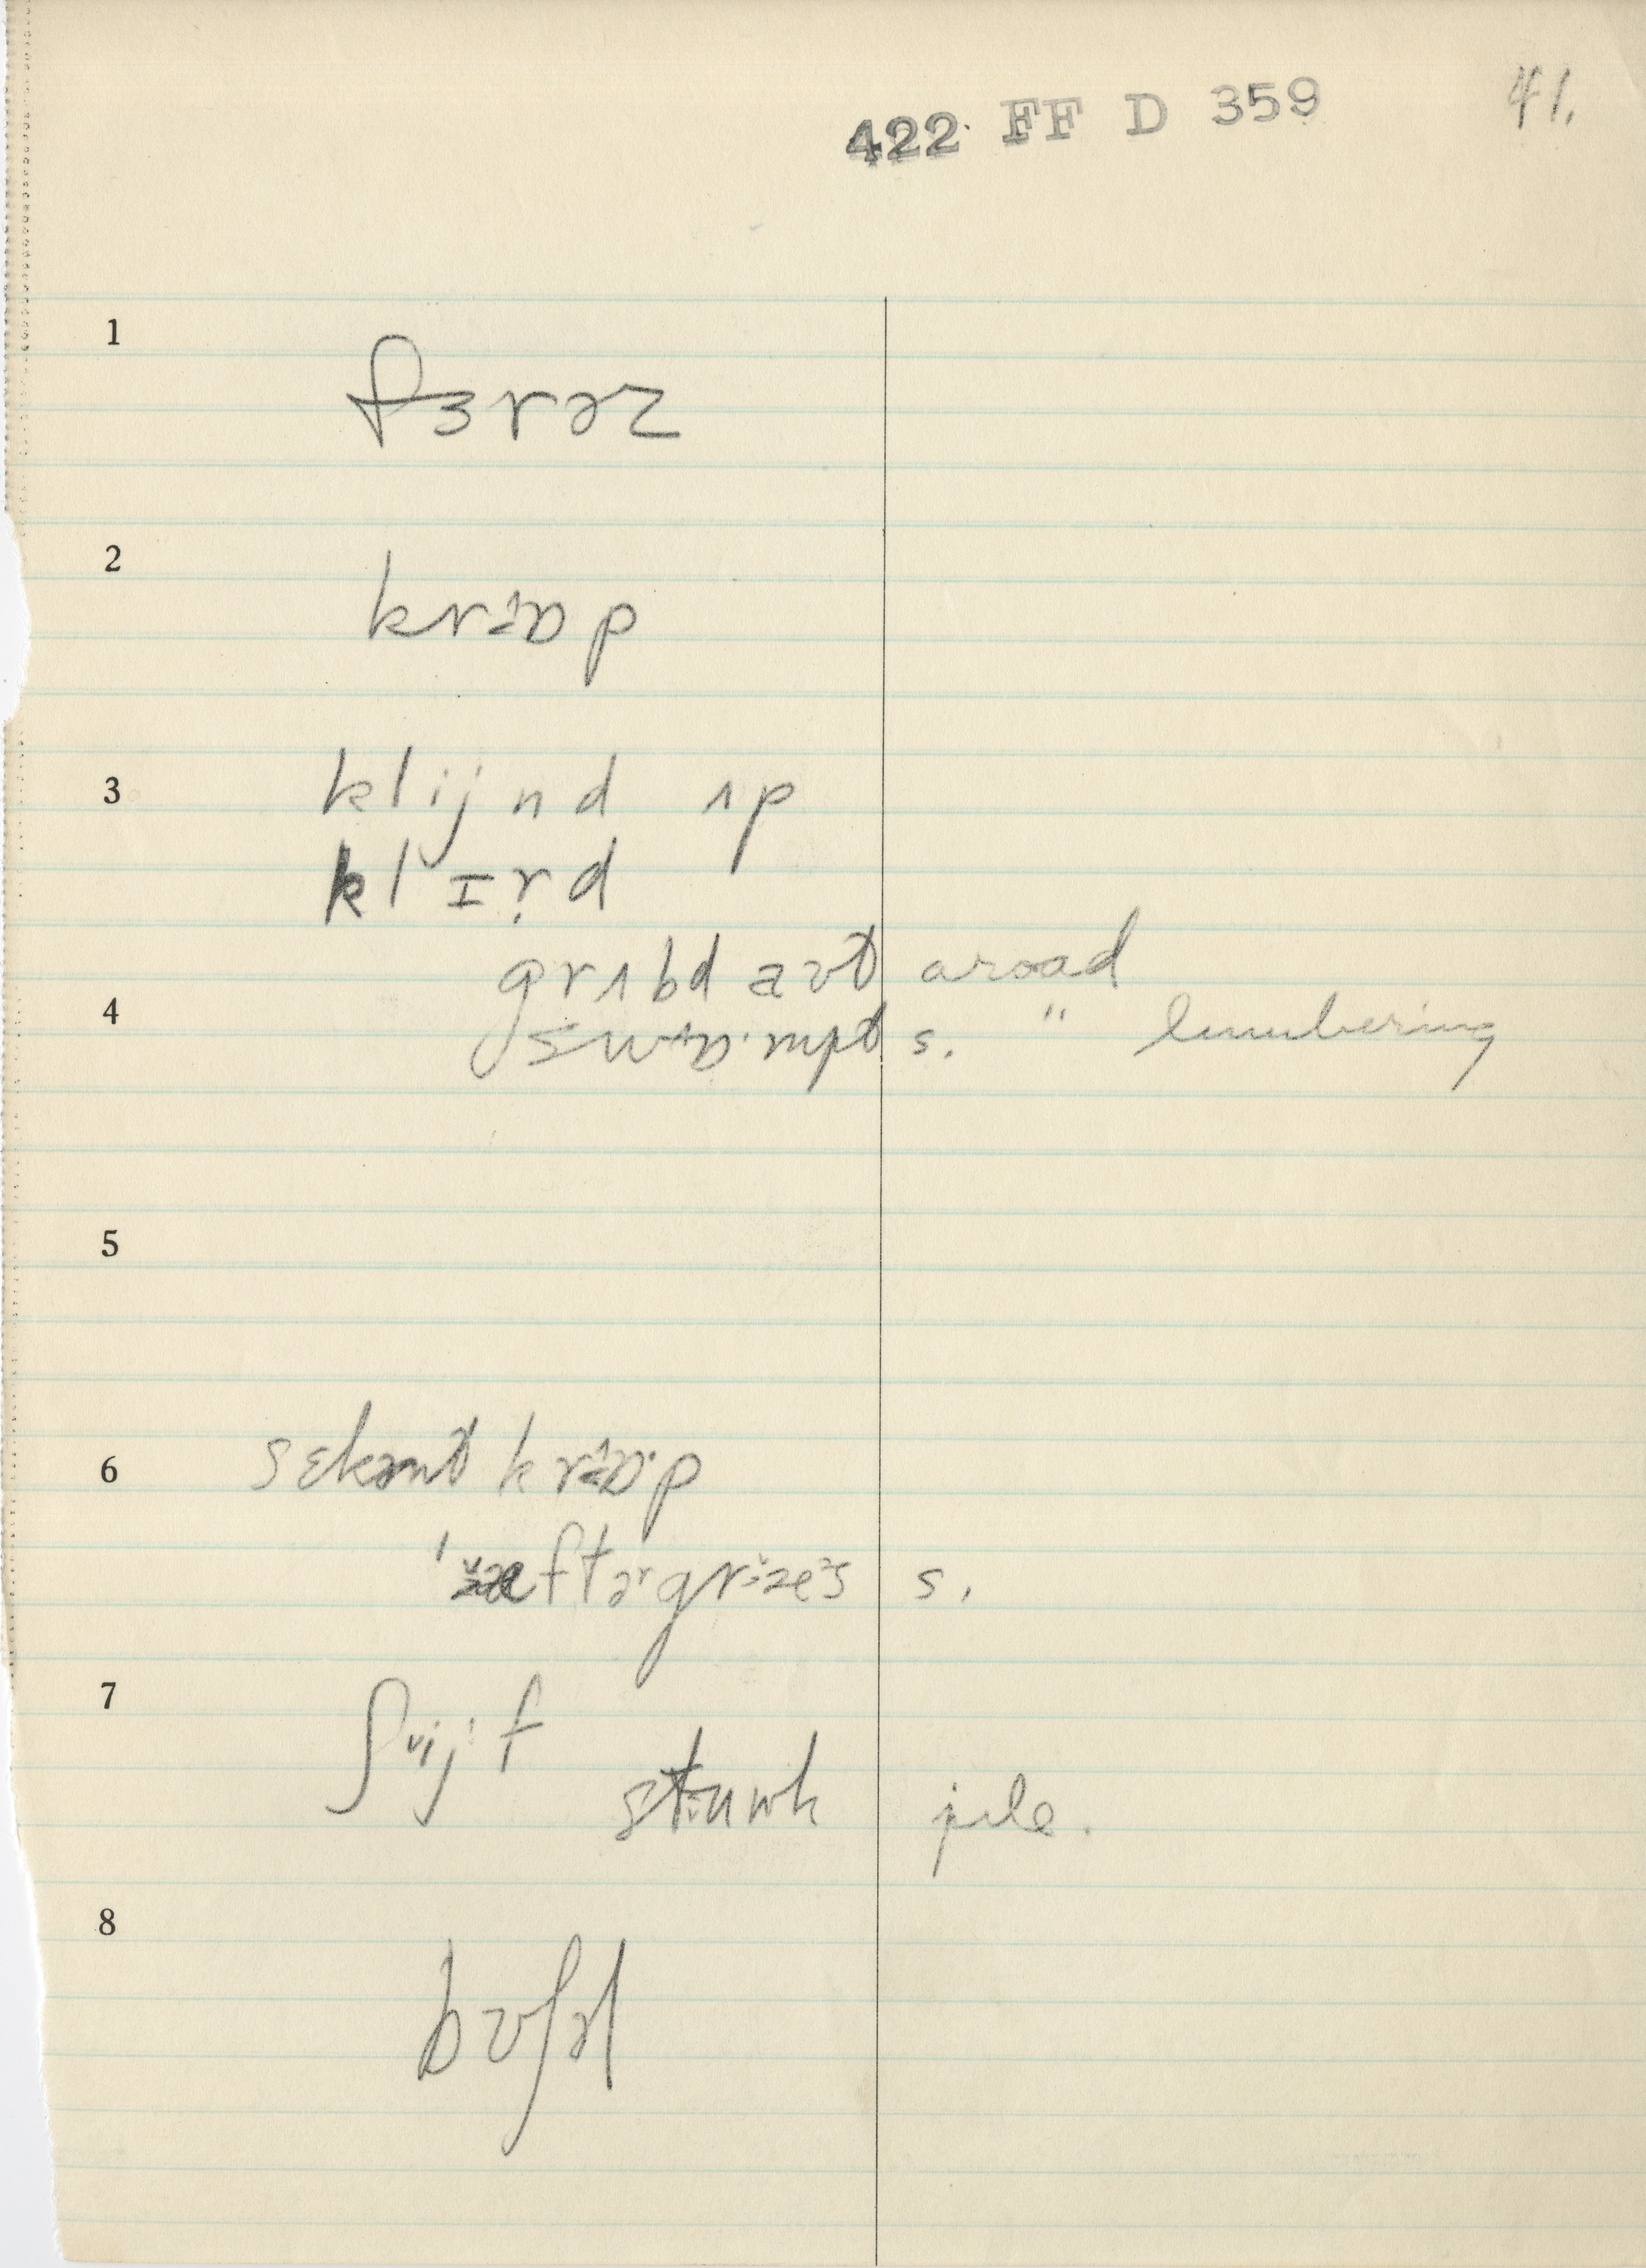 422 FF D 359 41.
1 fɜrəz
2 krɒp
3 klijnd ʌp
klɪrd
grʌbd aʊt a road
4 swɒ·mpt s. " lumbering
5
6 sɛkənt krɒ·p
s.
7 ʃij·f
pile.
8 bʊʃəl